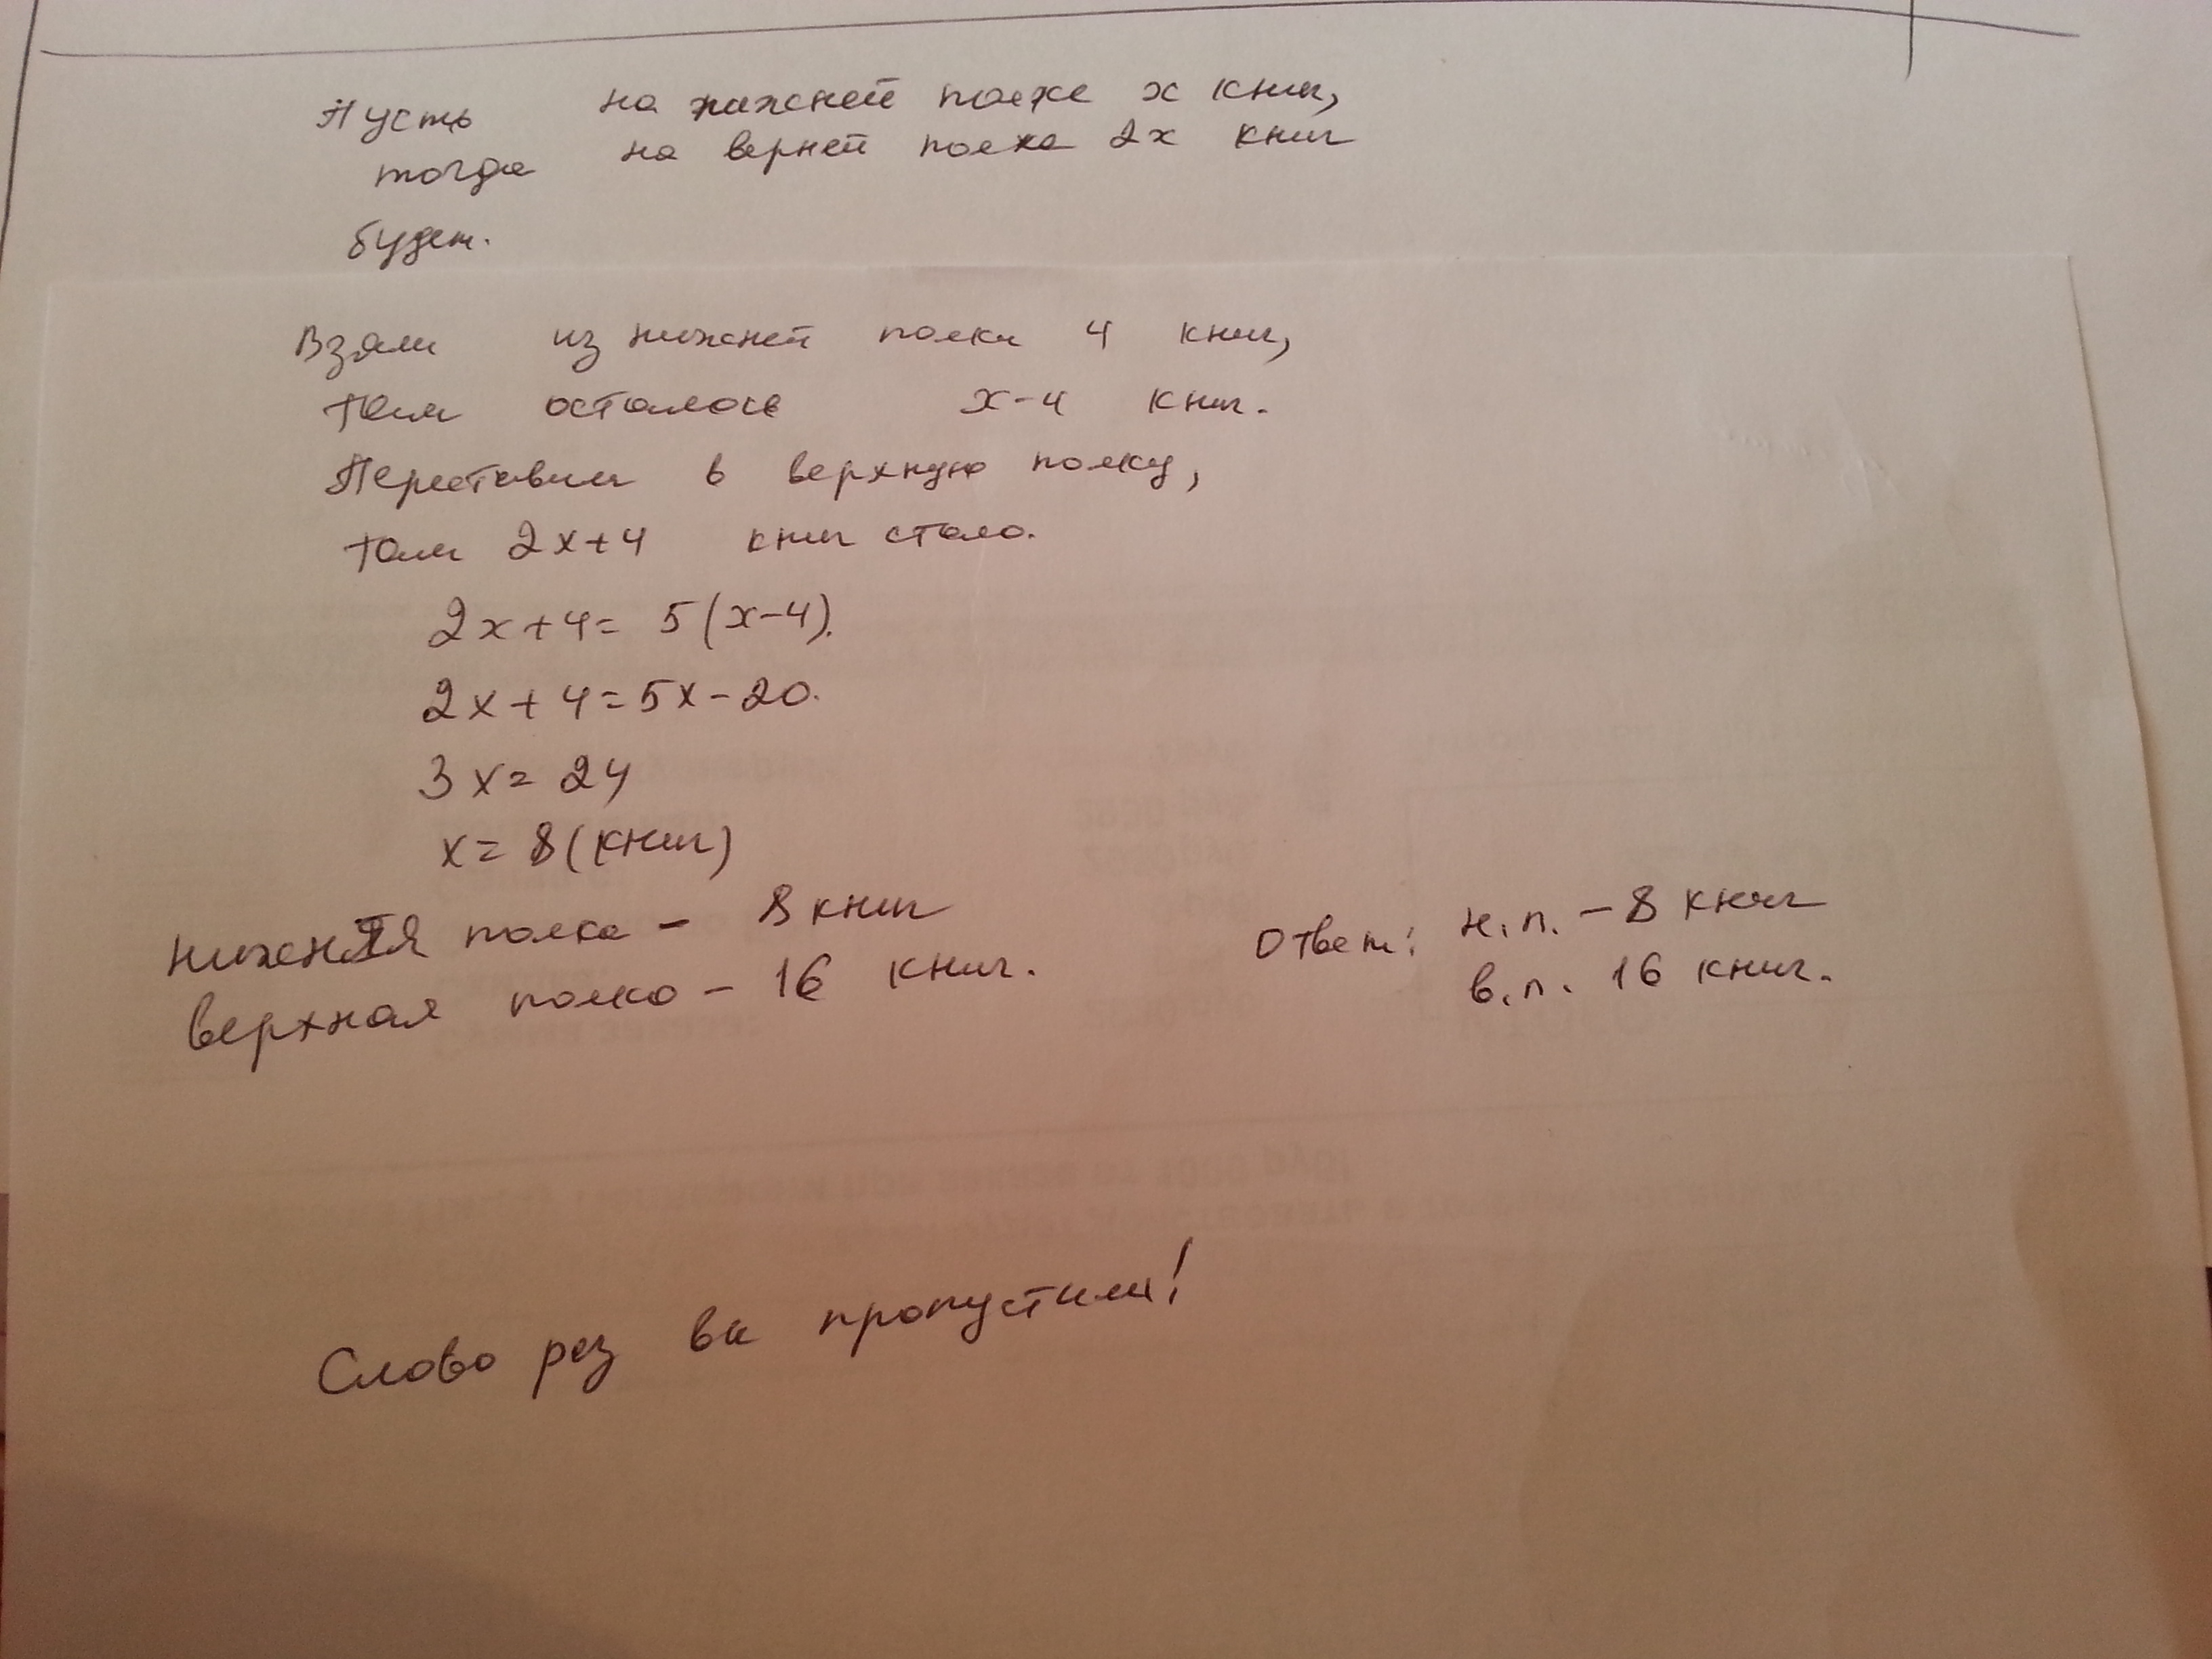 Пусть на нижней полке x книг,
тогда на верней полке 2x книг
будет.
Взяли из нижней полки 4 книг,
там осталось x-4 книг.
Переставили в верхнюю полку,
там 2x+4 книг стало.
2x+4= 5(x-4).
2x+4=5x-20.
3x= 24
x= 8(книг)
нижняя полка - 8 книг
верхная полка - 16 книг.
Ответ: н.п. - 8 книг
в.п. 16 книг.
Слово раз вы пропустили!